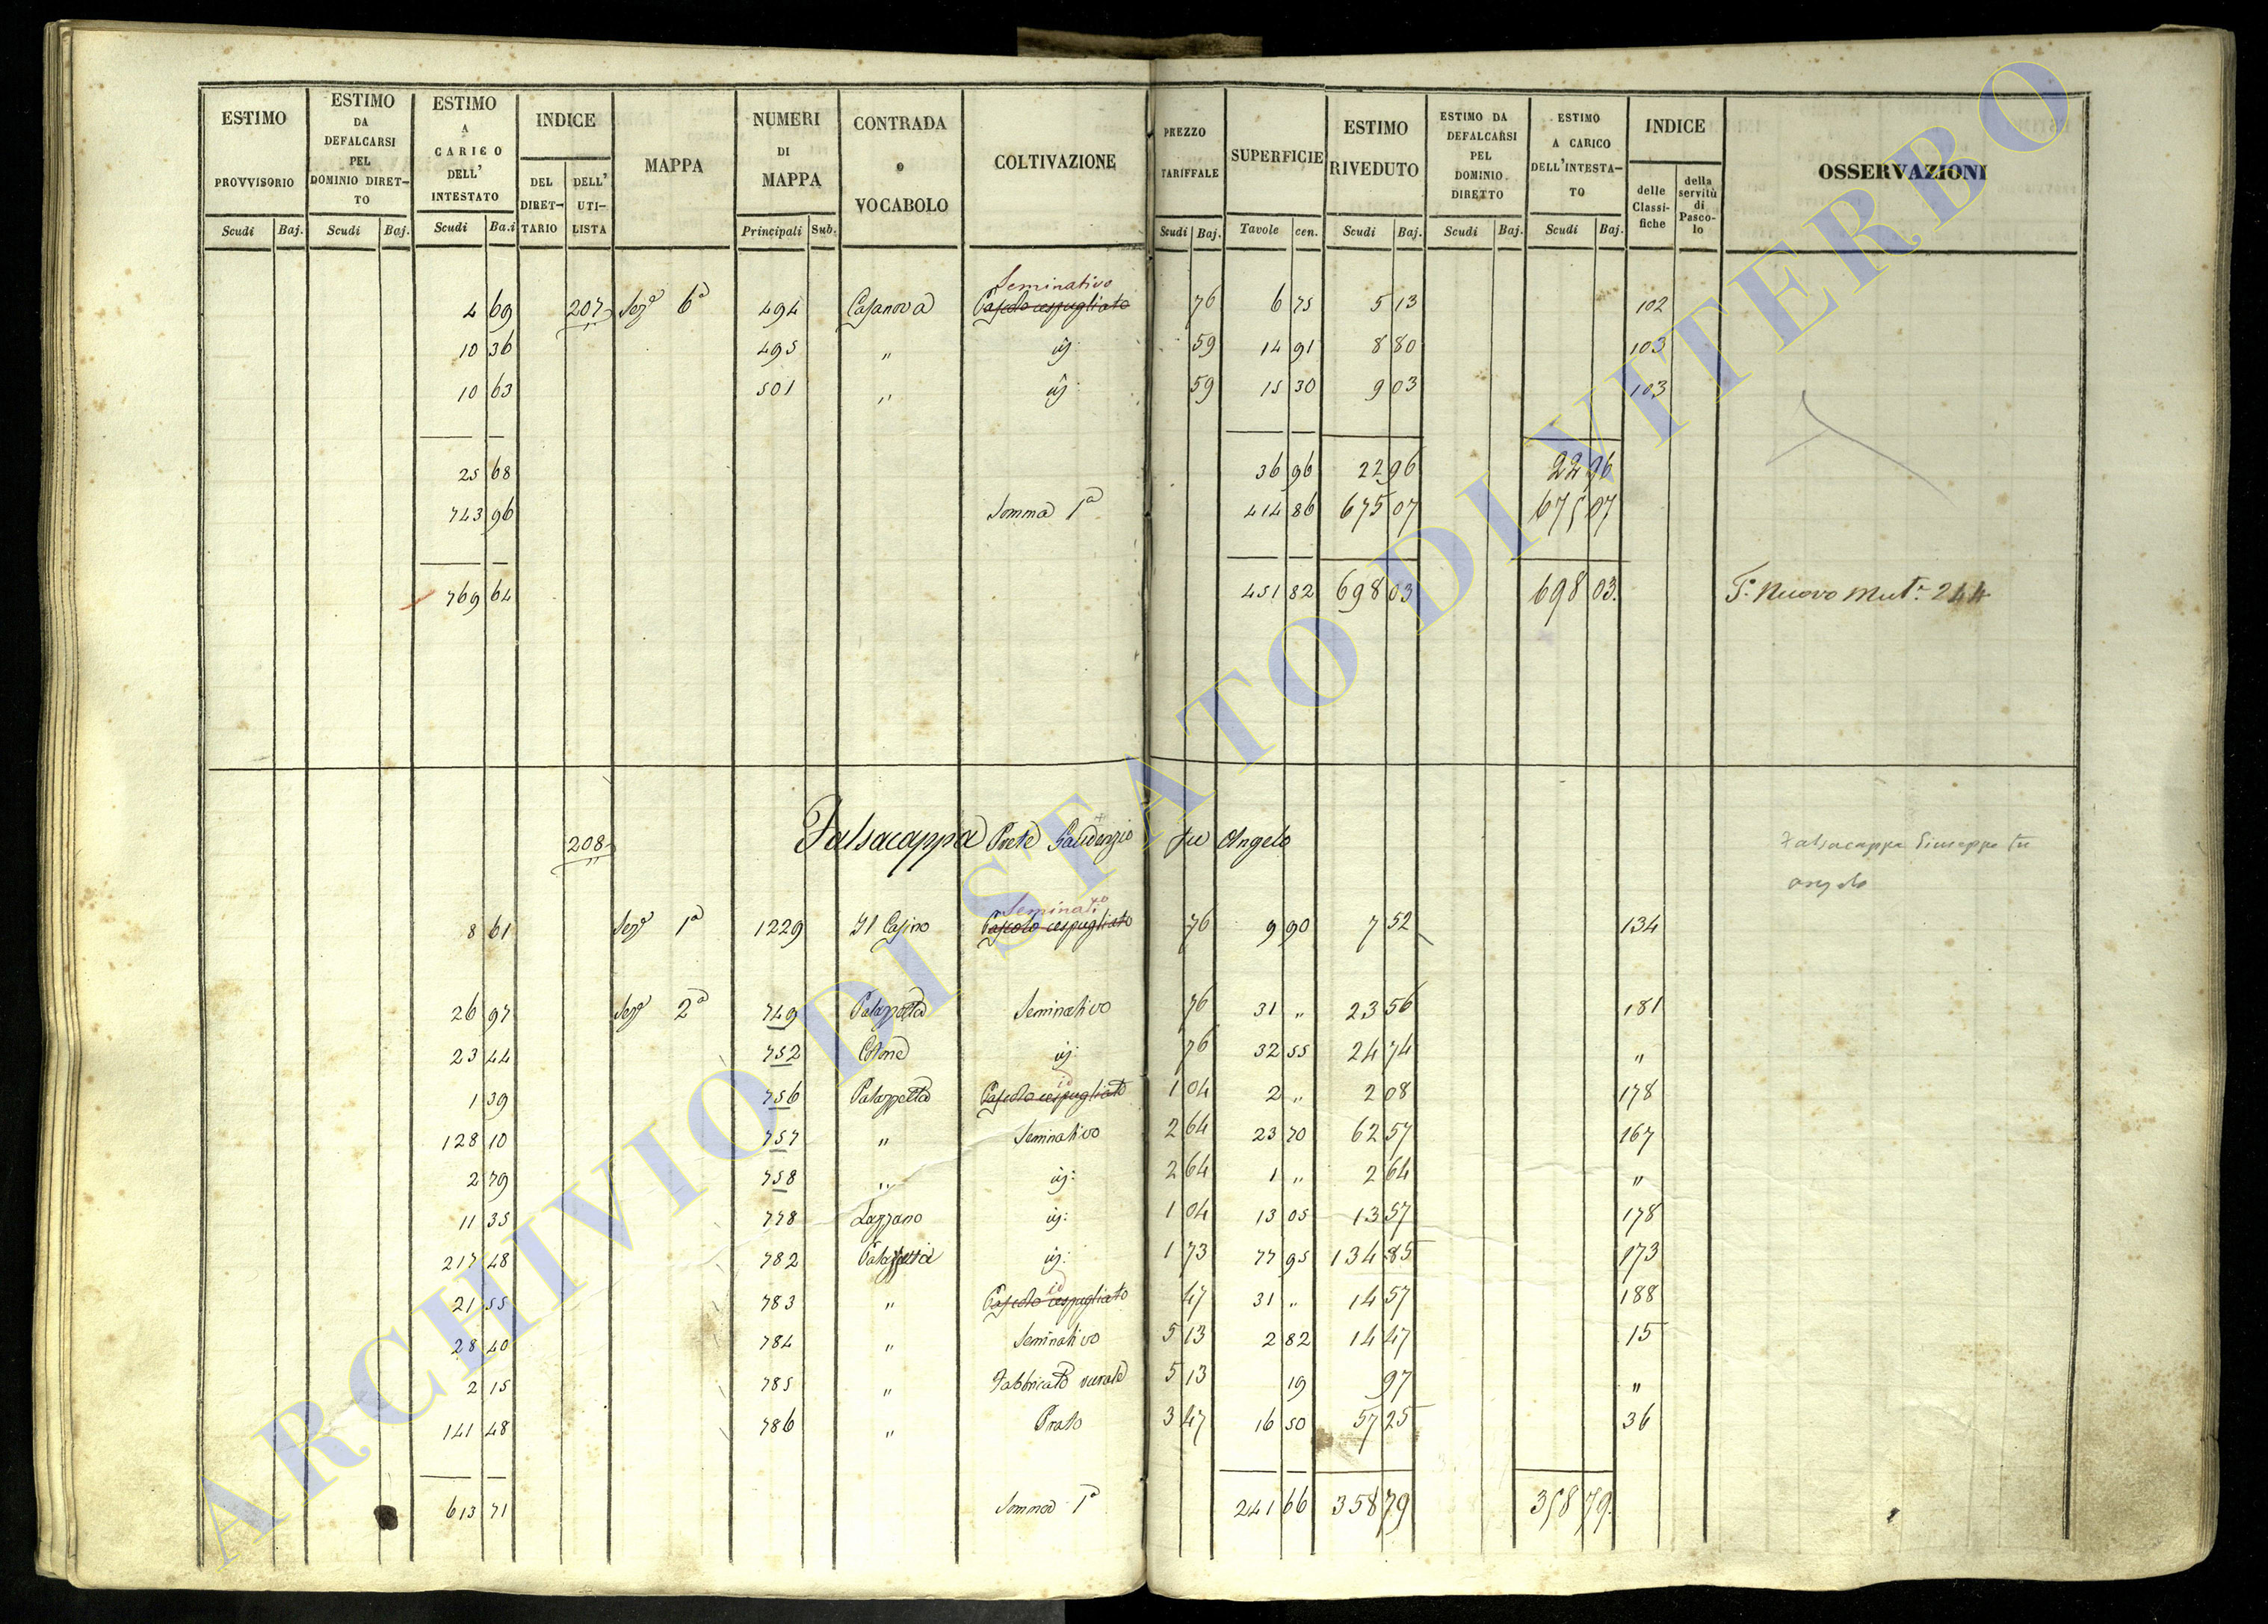 ESTIMO PROVVISORIO | ESTIMO DA DEFALCARSI PEL DOMINIO DIRET-TO | ESTIMO A CARICO DELL' INTESTATO | INDICE | MAPPA | NUMERI DI MAPPA | CONTRADA o VOCABOLO | COLTIVAZIONE | PREZZO TARIFFALE | SUPERFICIE | ESTIMO RIVEDUTO | ESTIMO DA DEFALCARSI PEL DOMINIO DIRETTO | ESTIMO A CARICO DELL'INTESTA-TO | INDICE | OSSERVAZIONI
Scudi | Baj. | Scudi | Baj. | Scudi | Ba.i | DEL DIRET-TARIO | DELL' UTI-LISTA | Principali | Sub. | Scudi | Baj. | Tavole | cen. | Scudi | Baj. | Scudi | Baj. | Scudi | Baj. | delle Classi-fiche | della servitù di Pasco-lo
Seminativo
4 69 207 Sez.ª 6ª 494 Casanova Pascolo cespugliato 76 6 75 5 13 102
10 36 495 " id: 59 14 91 8 80 103
10 63 501 " id: 59 15 30 9 03 103
25 68 36 96 22 96 22 96
743 96 Somma 1ª 414 86 675 07 675 07
769 64 451 82 698 03 698 03. Nuovo Mut.e 244
208 Falsacappa Prete Gaudenzio fu Angelo Falsacappa Giuseppe fu
Angelo
Seminativo
8 61 Sez.ª 1ª 1229 Il Casino Pascolo cespugliato 76 9 90 7 52 134
26 97 Sez.ª 2ª 749 Palazzetta Seminativo 76 31 " 23 56 181
23 44 752 id: 76 32 55 24 74 "
id
1 39 756 Palazzetta Pascolo cespugliato 1 04 2 " 2 08 178
128 10 757 " Seminativo 2 64 23 70 62 57 167
2 79 758 " id: 2 64 1 " 2 64 "
11 35 778 Lazzano id: 1 04 13 05 13 57 178
217 48 782 Palazzetta id: 1 73 77 95 134 85 173
id
21 55 783 " Pascolo cespugliato 47 31 " 14 57 188
28 40 784 " Seminativo 5 13 2 82 14 47 15
2 15 785 " Fabbricato rurale 5 13 19 97 "
141 48 786 " Prato 3 47 16 50 57 25 36
613 71 Somma 1ª 241 66 358 79 358 79.
ARCHIVIO DI STATO DI VITERBO